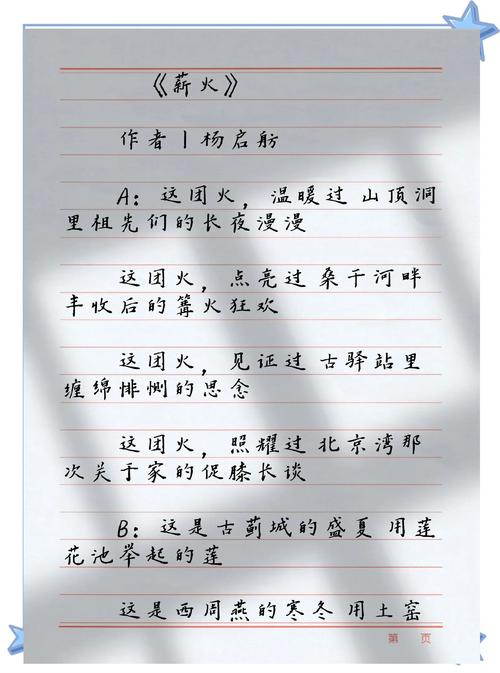 《薪火》
作者丨杨启舫
A：这团火，温暖过 山顶洞
里祖先们的长夜漫漫
这团火，点亮过 桑干河畔
丰收后的篝火狂欢
这团火，见证过 古驿站里
缠绵悱恻的思念
这团火，照耀过 北京湾那
次关于家的促膝长谈
B：这是古蓟城的盛夏 用莲
花池举起的莲
这是西周燕的寒冬 用土窑
第 页